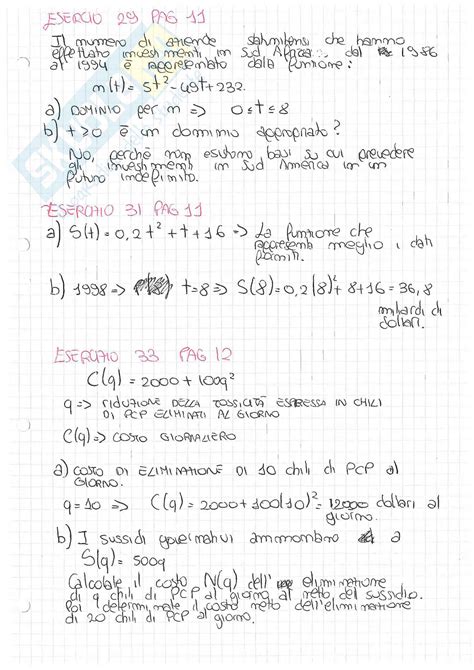 ESERCIO 29 PAG 11
Il numero di aziende statunitensi che hanno
effettuato investimenti in Sud dal 1986
al 1994 è rappresentato dalla funzione:
m(t) = 5t² - 49t + 232.
a) DOMINIO per m => 0 ≤ t ≤ 8
b) t ≥ 0 è un dominio appropriato?
No, perché non esistono basi su cui prevedere
gli investimenti in Sud America in un
futuro indefinito.
ESERCIZIO 31 PAG 11
a) S(t) = 0,2t² + t + 16 => La funzione che
rappresenta meglio i dati
forniti.
b) 1998 => t = 8 => S(8) = 0,2(8)² + 8 + 16 = 36,8
miliardi di
dollari.
ESERCIZIO 33 PAG 12
C(q) = 2000 + 100q²
q => RIDUZIONE DELLA TOSSICITÀ ESPRESSA IN CHILI
DI PCP ELIMINATI AL GIORNO
C(q) => COSTO GIORNALIERO
a) COSTO DI ELIMINAZIONE DI 10 chili di PCP al
GIORNO.
q = 10 => C(q) = 2000 + 100(10)² = 12000 dollari al
giorno.
b) I sussidi governativi ammontano a
S(q) = 500q
Calcolate il costo N(q) dell' eliminazione
di q chili di PCP al giorno al netto del sussidio.
Poi determinate il costo netto dell'eliminazione
di 20 chili di PCP al giorno.